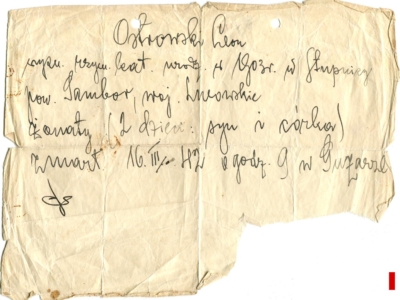 Ostrowski Leon
wyzn. rzym. kat. urodz. w 1903r. w Słupnicy
pow. Sambor, woj. Lwowskie
żonaty (2 dzieci: syn i córka)
zmarł 16.III 42 o godz. 9 w Guzarze